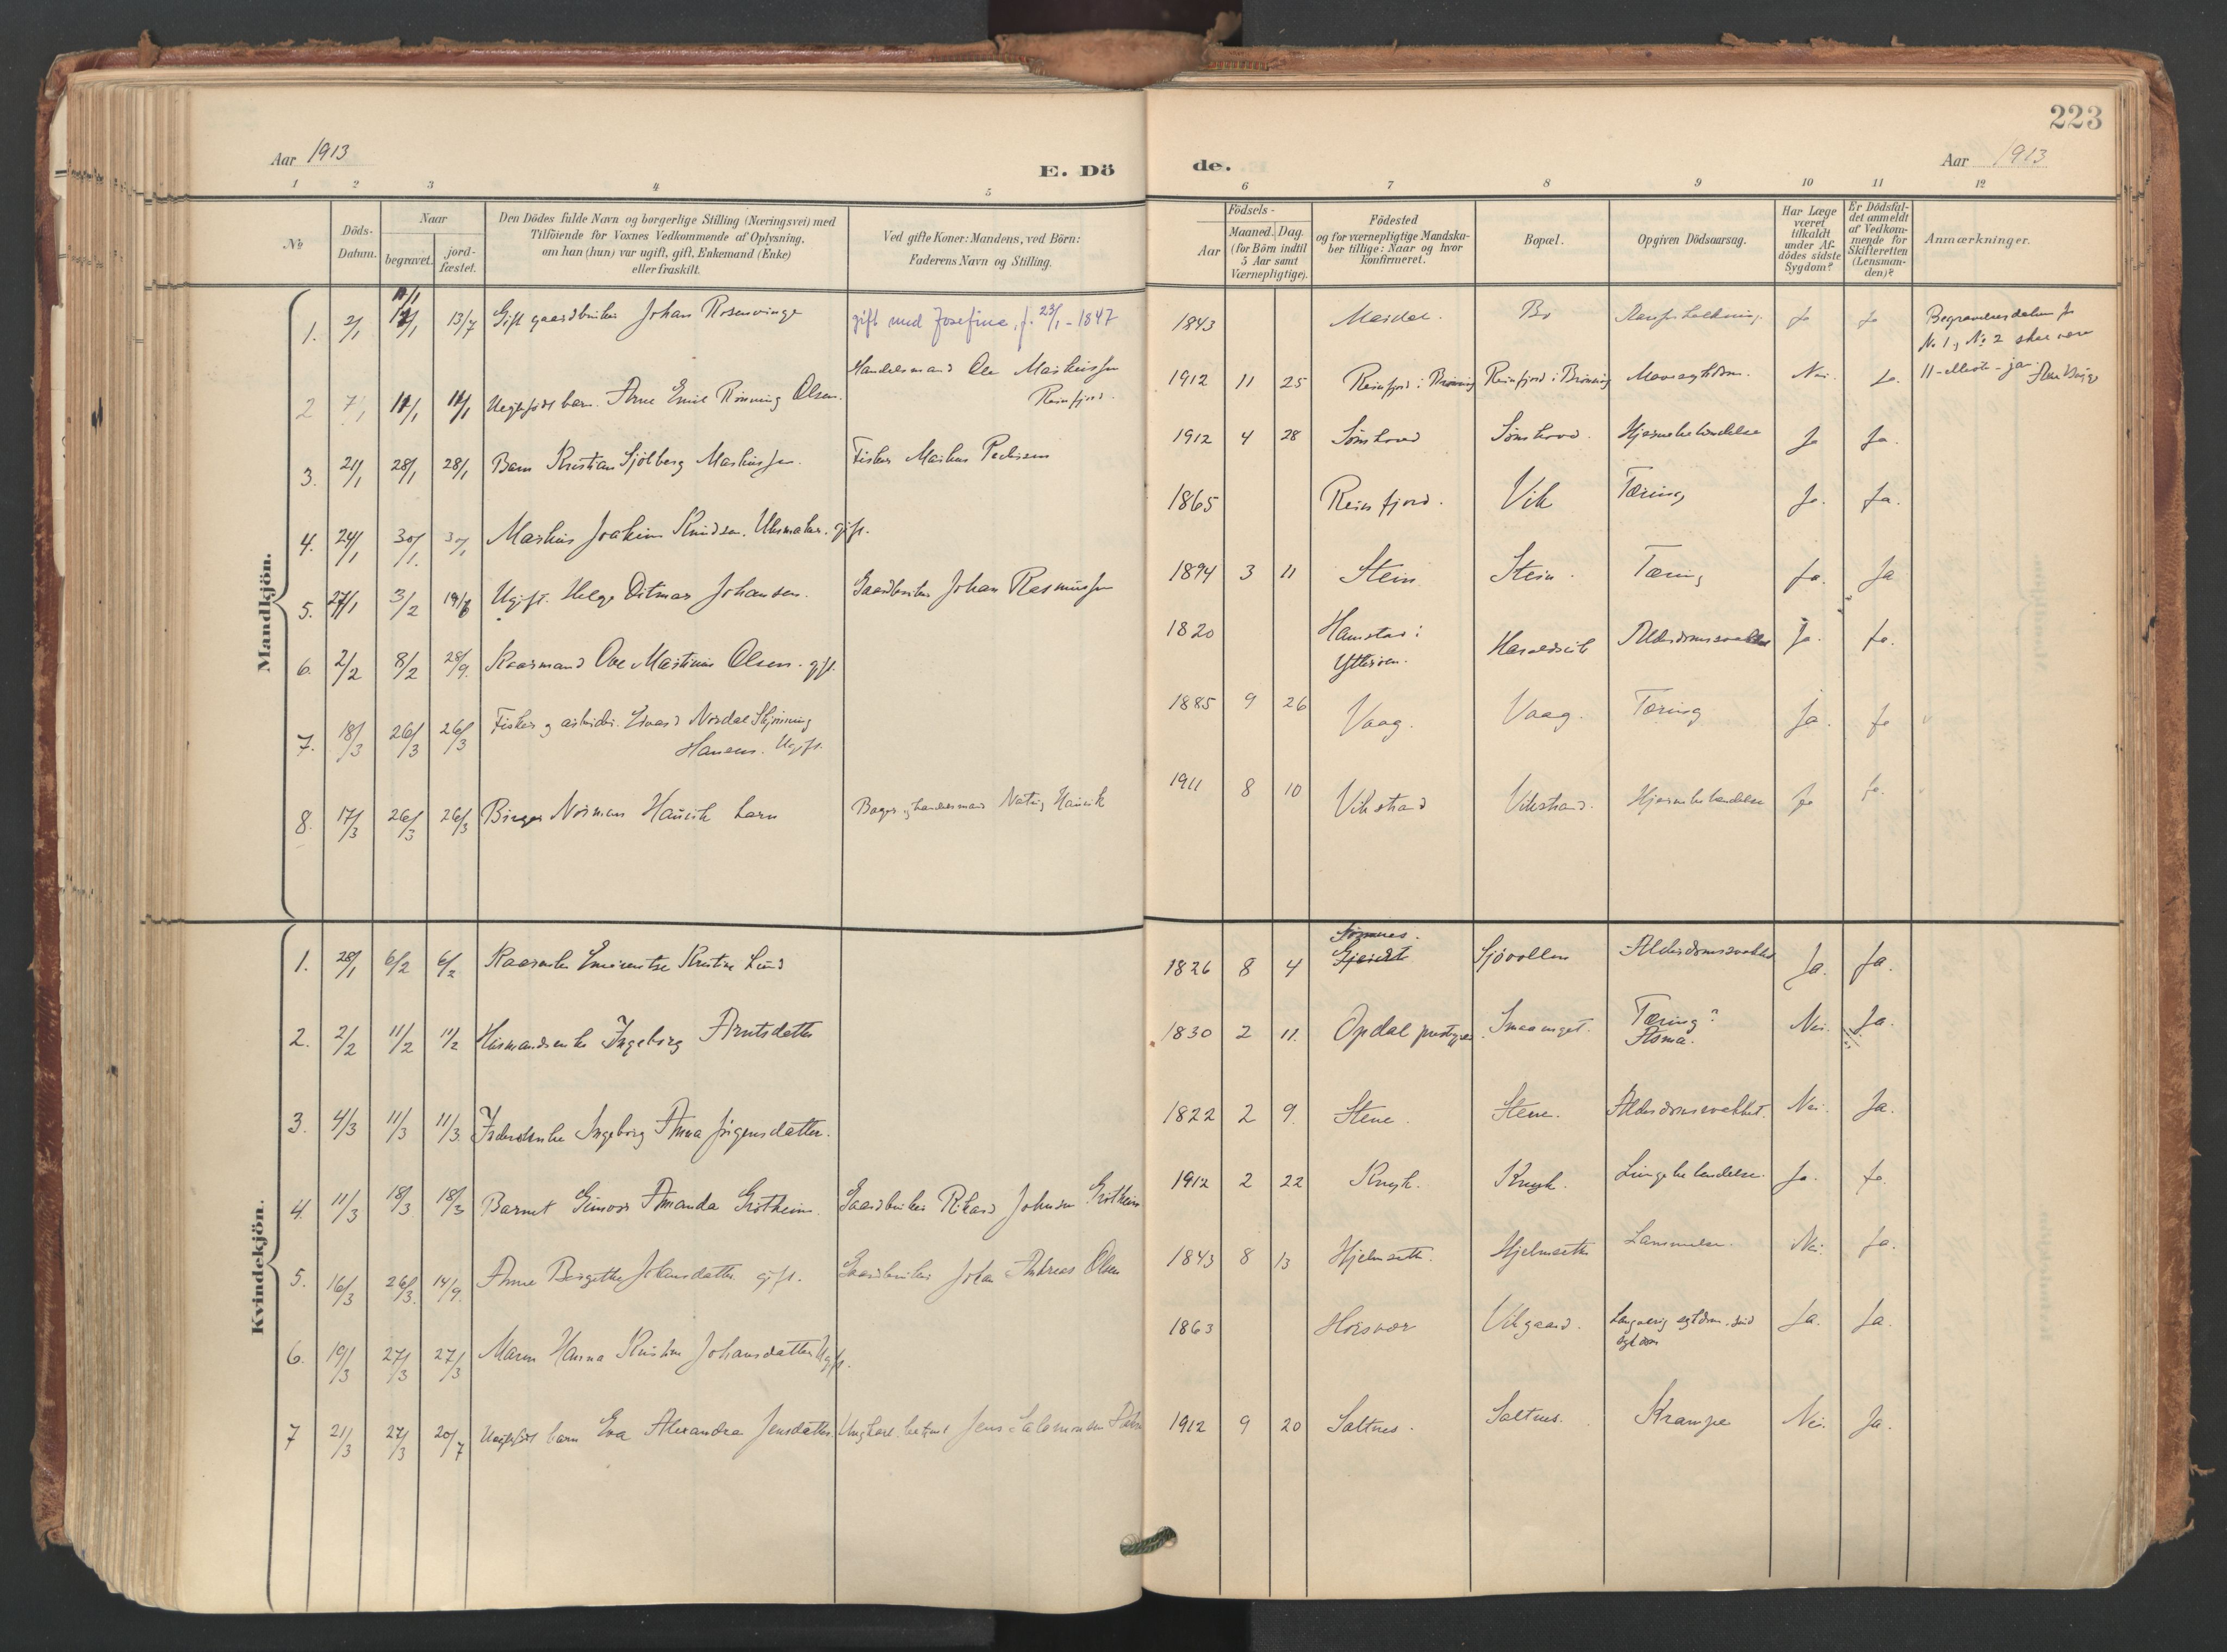 223
Aar 1913
E. Dö de.
Aar 1913
1 2 3 4 5 6 7 8 9 10 11 12
No
Döds-Datum.
Naar
begravet.
jord-fæstet.
Den Dödes fulde Navn og borgerlige Stilling (Næringsvei) med
Tilföiende for Voxnes Vedkommende af Oplysning,
om han (hun) var ugift, gift, Enkemand (Enke)
eller fraskilt.
Ved gifte Koner: Mandens, ved Börn:
Faderens Navn og Stilling.
Födsels-
Aar
Maaned. Dag.
(for Börn indtil
5 Aar samt
Værnepligtige).
Födested
og for værnepligtige Mandska-
ber tillige: Naar og hvor
konfirmeret.
Bopæl.
Opgiven Dödsaarsag.
Har Læge
været
tilkaldt
under Af-
dödes sidste
Sygdom?
Er Dödsfal-
det anmeldt
af Vedkom-
mende for
Skifteretten
(Lensman-
den)?
Anmærkninger.
Mandkjön.
1. 2/1 11/1 13/7 Gift gaardbruker Johan Rosenvinge gift med Josefine, f. 23/1-1847 1843 Bø Ja Ja Begravelsesdatum for
No 1 og No 2 skal være
11-ellevte-jan
2 7/1 11/1 11/1 Uegtefødt barn. Arne Emil Rønning Olsen. Handelsmand Ole Markussen
Reinfjord. 1912 11 25 Reinfjord i Brønnøy Reinfjord i Brønnøy Mavesygdom. Nei. Ja.
3. 21/1 28/1 28/1 Barn Kristian Sjölberg Markussen. Fisker Markus Pedersen 1912 4 28 Sømshoved Sømshoved. Hjernebetændelse Ja Ja.
4. 24/1 30/1 30/1 Markus Joakim Knudsen. Uhrmaker. gift. 1865 Reinfjord. Vik Tæring Ja. Ja.
5. 27/1 3/2 Ugift. Helge Ditmar Johansen. Gaardbruker Johan Rasmussen 1894 3 11 Stein Stein. Tæring Ja. Ja
6. 2/2 8/2 28/9. Kaarmand Ole Martinus Olsen. gift. 1820 Hamstad i
Ytterøen. Alderdomssvakhet Ja. Ja.
7. 18/3 26/3 26/3 Fisker og arbeider. Edvard Nordal Skjønning
Hansen. Ugift. 1885 9 26 Vaag. Vaag. Tæring Ja. Ja
8. 17/3 26/3 26/3 Birger Norman Hauvik barn Bager og handelsmand Hauvik 1911 8 10 Vikstrand Vikstrand. Hjernebetændelse Ja Ja.
Kvindekjön.
1. 28/1 6/2 6/2 Kaarenke Emerentse Kristine Lund 1826 8 4 Sømnes. Sjövollen Alderdomssvakhet Ja. Ja.
2. 2/2 11/2 11/2 Husmandsenke Ingeborg Arntsdatter 1830 2 11. Opdal prestegjeld Tæring?
Astma. Nei. Ja.
3. 4/3 11/3 11/3. Ingeborg Anna Jörgensdatter. 1822 2 9. Stene. Stene. Alderdomssvakhet. Nei. Ja.
4. 11/3 18/3 18/3 Barnet Gunvor Amanda Grøtheim. Gaardbruker Rikard Johnsen Grøtheim 1912 2 22 Kvyk. Kvyk. Lungebetændelse. Ja. Ja.
5. 16/3 26/3. 14/9. Anne Bergitte Johansdatter gift. Gaardbruker Johan Andreas Olsen 1843 8 13 Hjelmseth. Hjelmseth Lammelse. Nei. Ja.
6. 19/3 27/3 27/3 Maren Hanna Kristine Johansdatter Ugift. 1863 Horsvær Vikgaard. Langvarig sygdom. Ja. Ja.
7 21/3 27/3 20/7 Uegtefødt barn Eva Alexandra Jensdatter. Ungkarl Jens Salomonsen 1912 9 20 Saltnes. Saltnes. Krampe Nei. Ja.